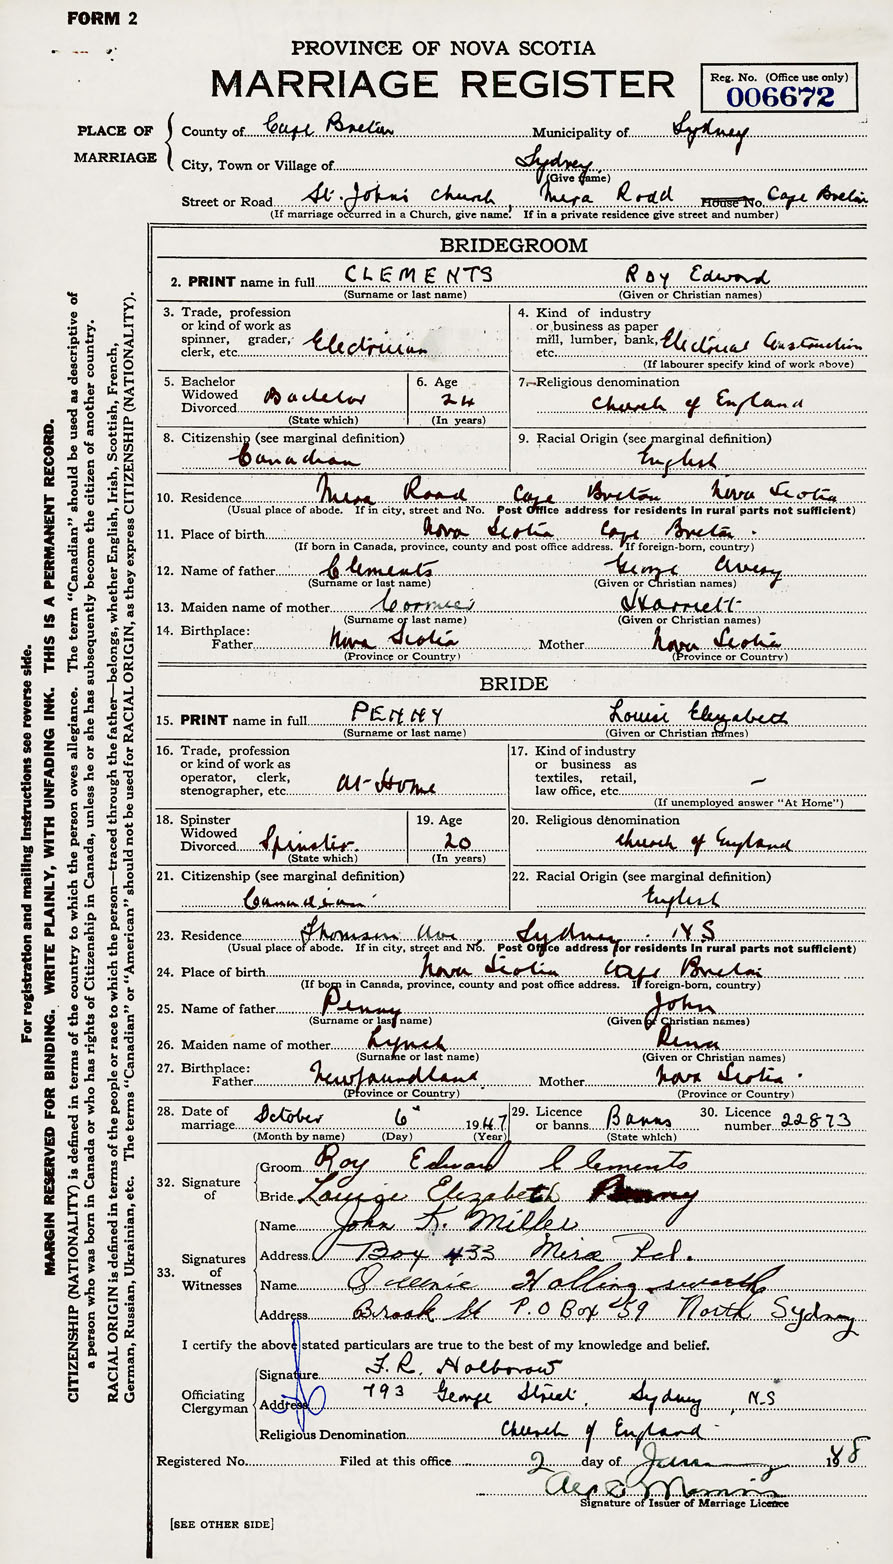 FORM 2
PROVINCE OF NOVA SCOTIA
MARRIAGE REGISTER
Reg. No. (Office use only)
006672
PLACE OF MARRIAGE
County of Cape Breton Municipality of Sydney
City, Town or Village of Sydney
(Give name)
Street or Road St. John's Church, Mira Road House No. Cape Breton
(If marriage occurred in a Church, give name. If in a private residence give street and number)
BRIDEGROOM
2. PRINT name in full CLEMENTS Roy Edward
(Surname or last name) (Given or Christian names)
3. Trade, profession or kind of work as spinner, grader, clerk, etc. Electrician
4. Kind of industry or business as paper mill, lumber, bank, etc. Electrical Construction
(If labourer specify kind of work above)
5. Bachelor Widowed Divorced Bachelor
(State which)
6. Age 24
(In years)
7. Religious denomination
Church of England
8. Citizenship (see marginal definition)
Canadian
9. Racial Origin (see marginal definition)
English
10. Residence Mira Road Cape Breton Nova Scotia
(Usual place of abode. If in city, street and No. Post Office address for residents in rural parts not sufficient)
11. Place of birth Nova Scotia Cape Breton
(If born in Canada, province, county and post office address. If foreign-born, country)
12. Name of father Clements George Avery
(Surname or last name) (Given or Christian names)
13. Maiden name of mother Harriett
(Surname or last name) (Given or Christian names)
14. Birthplace:
Father Nova Scotia Mother Nova Scotia
(Province or Country) (Province or Country)
BRIDE
15. PRINT name in full PENNY Louise Elizabeth
(Surname or last name) (Given or Christian names)
16. Trade, profession or kind of work as operator, clerk, stenographer, etc. At Home
17. Kind of industry or business as textiles, retail, law office, etc. —
(If unemployed answer "At Home")
18. Spinster Widowed Divorced Spinster
(State which)
19. Age 20
(In years)
20. Religious denomination
Church of England
21. Citizenship (see marginal definition)
Canadian
22. Racial Origin (see marginal definition)
English
23. Residence Thomson Ave, Sydney N.S
(Usual place of abode. If in city, street and No. Post Office address for residents in rural parts not sufficient)
24. Place of birth Nova Scotia Cape Breton
(If born in Canada, province, county and post office address. If foreign-born, country)
25. Name of father Penny John
(Surname or last name) (Given or Christian names)
26. Maiden name of mother Lynch Rena
(Surname or last name) (Given or Christian names)
27. Birthplace:
Father Newfoundland Mother Nova Scotia
(Province or Country) (Province or Country)
28. Date of marriage October 6" 1947
(Month by name) (Day) (Year)
29. Licence or banns Banns
(State which)
30. Licence number 22873
32. Signature of
Groom Roy Edward Clements
Bride Louise Elizabeth Penny
33. Signatures of Witnesses
Name John K. Miller
Address Box 433 Mira Rd.
Name Queenie Hollingsworth
Address Brook St P.O Box 59 North Sydney
I certify the above stated particulars are true to the best of my knowledge and belief.
Officiating Clergyman
Signature F. R. Holborow
Address 793 George Street, Sydney, N.S
Religious Denomination Church of England
Registered No. Filed at this office 2 day of January 1948
Signature of Issuer of Marriage Licence
[SEE OTHER SIDE]
For registration and mailing instructions see reverse side.
MARGIN RESERVED FOR BINDING. WRITE PLAINLY, WITH UNFADING INK. THIS IS A PERMANENT RECORD.
CITIZENSHIP (NATIONALITY) is defined in terms of the country to which the person owes allegiance. The term "Canadian" should be used as descriptive of
a person who was born in Canada or who has rights of Citizenship in Canada, unless he or she has subsequently become the citizen of another country.
RACIAL ORIGIN is defined in terms of the people or race to which the person—traced through the father—belongs, whether English, Irish, Scottish, French,
German, Russian, Ukrainian, etc. The terms "Canadian" or "American" should not be used for RACIAL ORIGIN, as they express CITIZENSHIP (NATIONALITY).